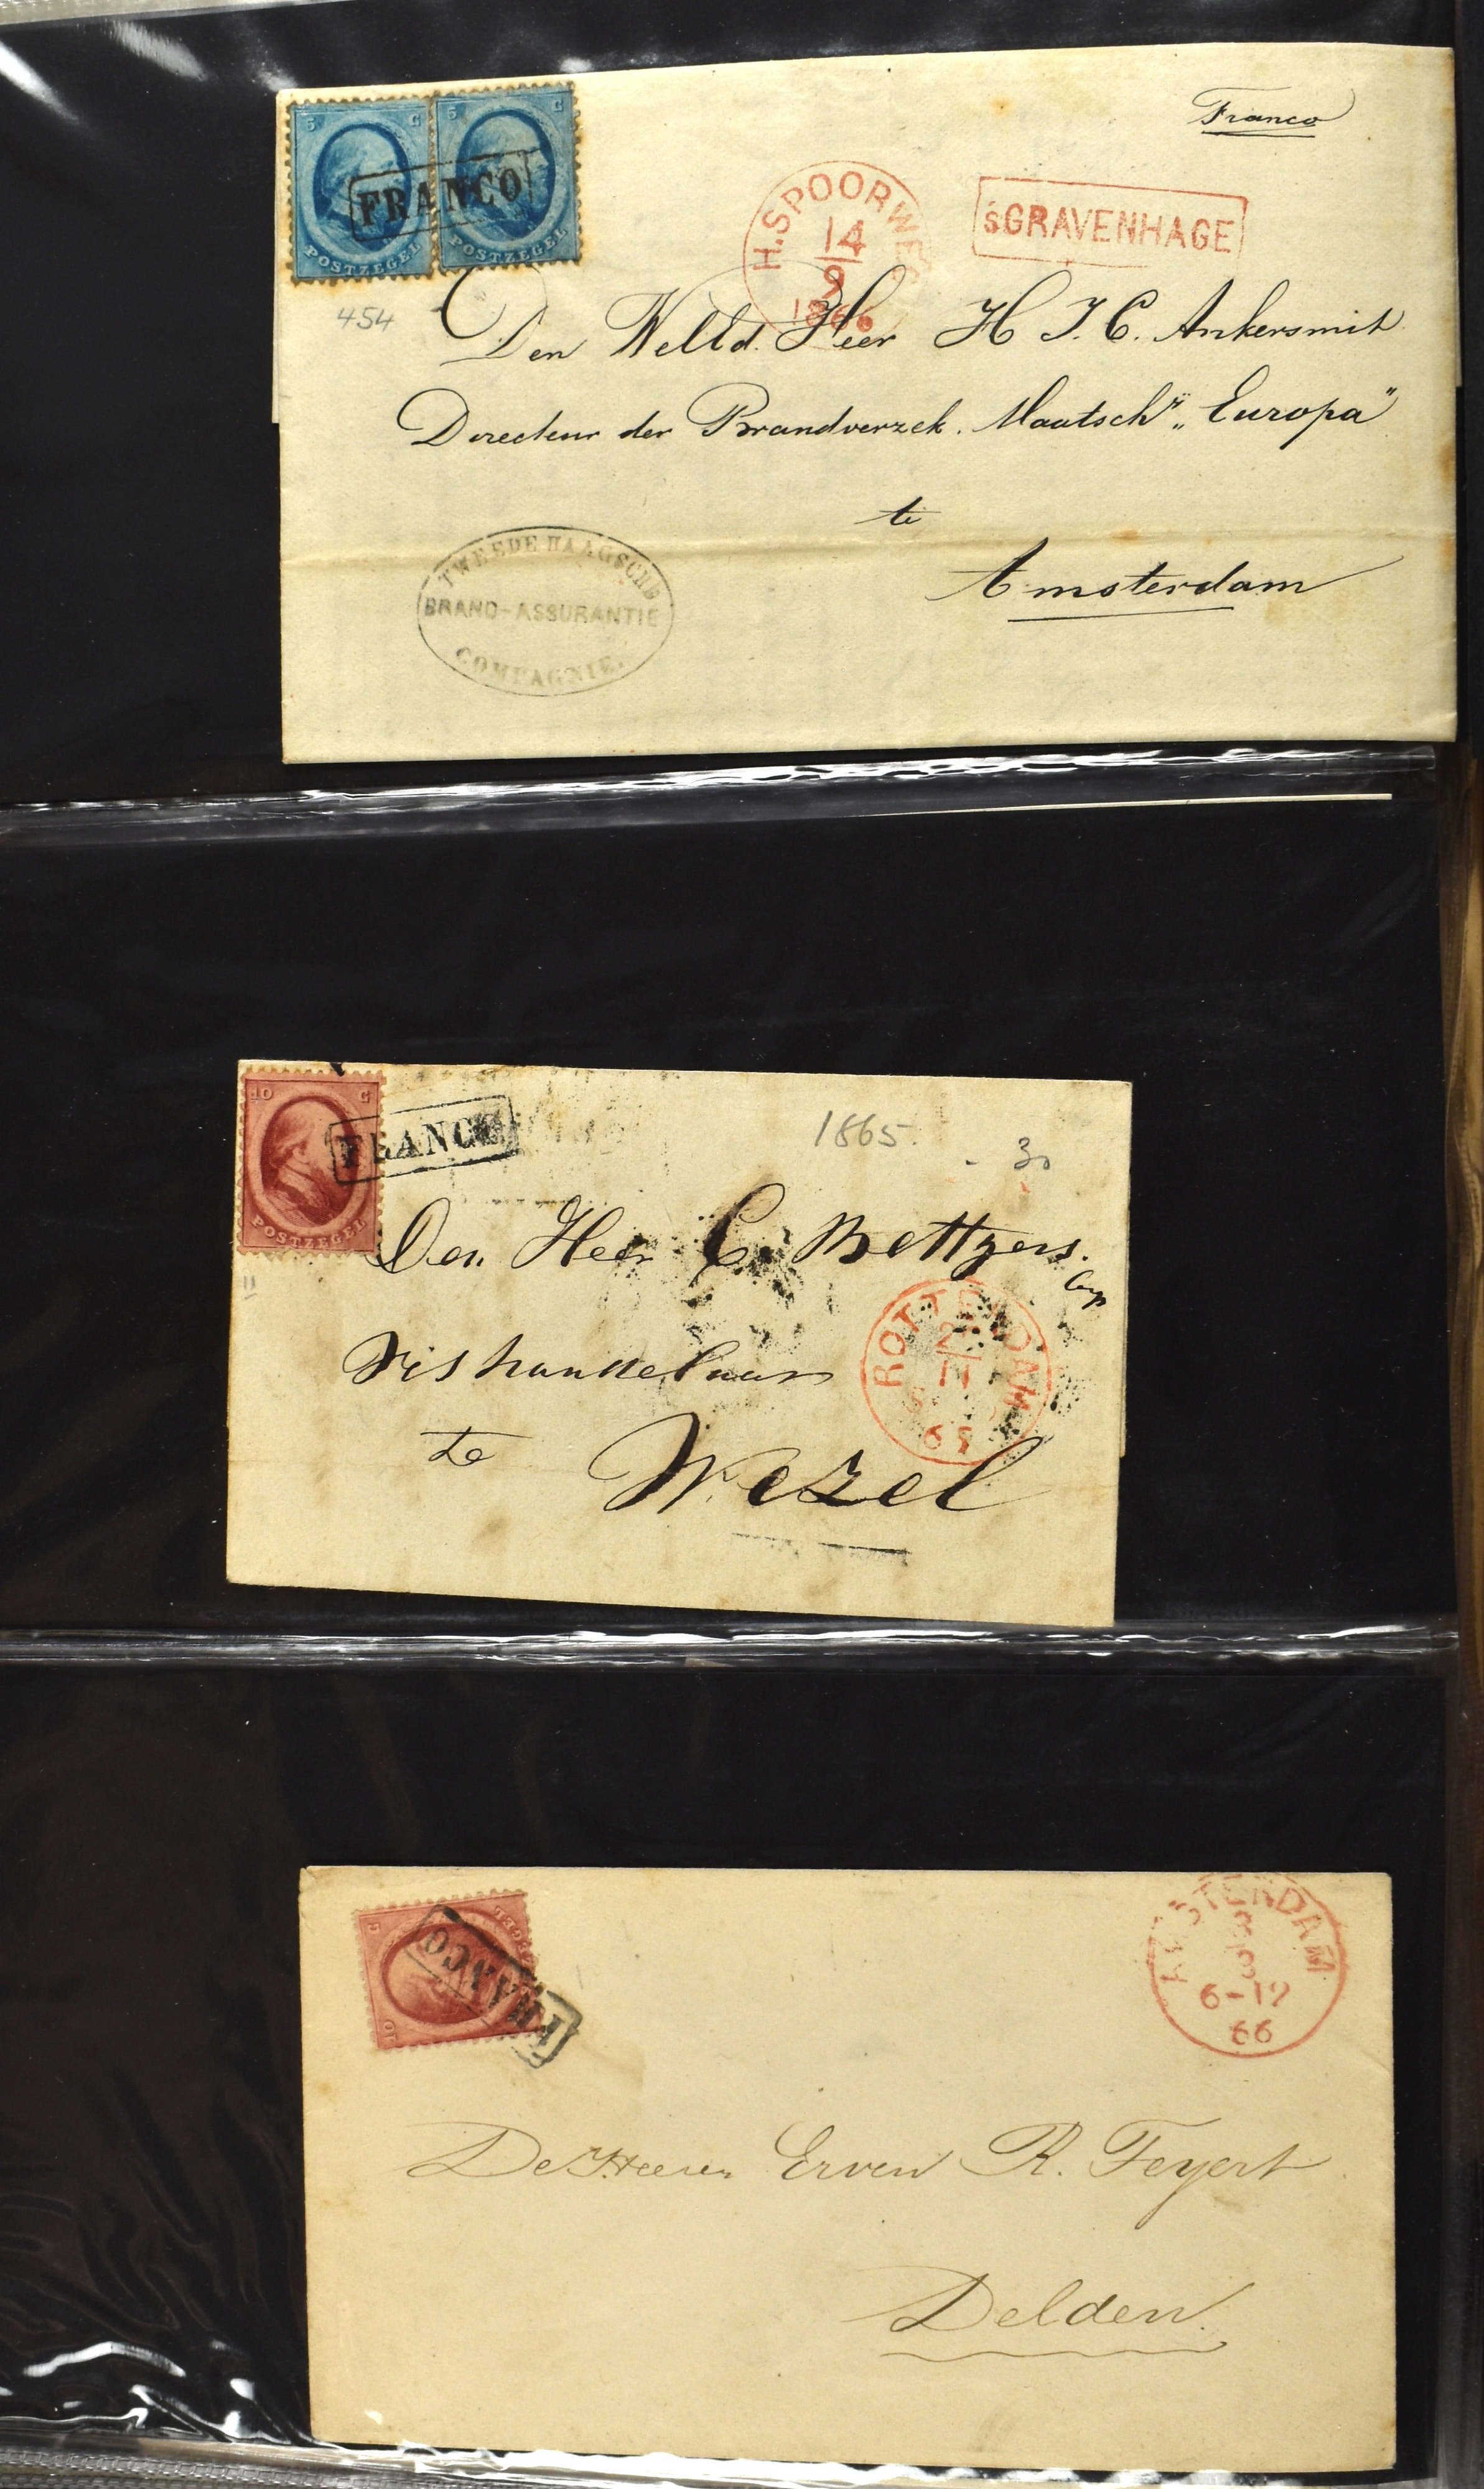 5 C
5 C
POSTZEGEL
POSTZEGEL
FRANCO
Franco
H.SPOORWEG
14
9
1866
'sGRAVENHAGE
454
Den WelEd. Heer H J. C. Ankersmit
Directeur der Brandverzek. Maatschij „Europa"
te
Amsterdam
TWEEDE HAAGSCHE
BRAND-ASSURANTIE
COMPAGNIE.
10 C
POSTZEGEL
FRANCO
1865.
30
11
Den Heer C.
ROTTERDAM
11
65
Vishandelaar
te Wezel
10 C
FRANCO
AMSTERDAM
6-12
66
De Heeren Erven R. Feyert
Delden.